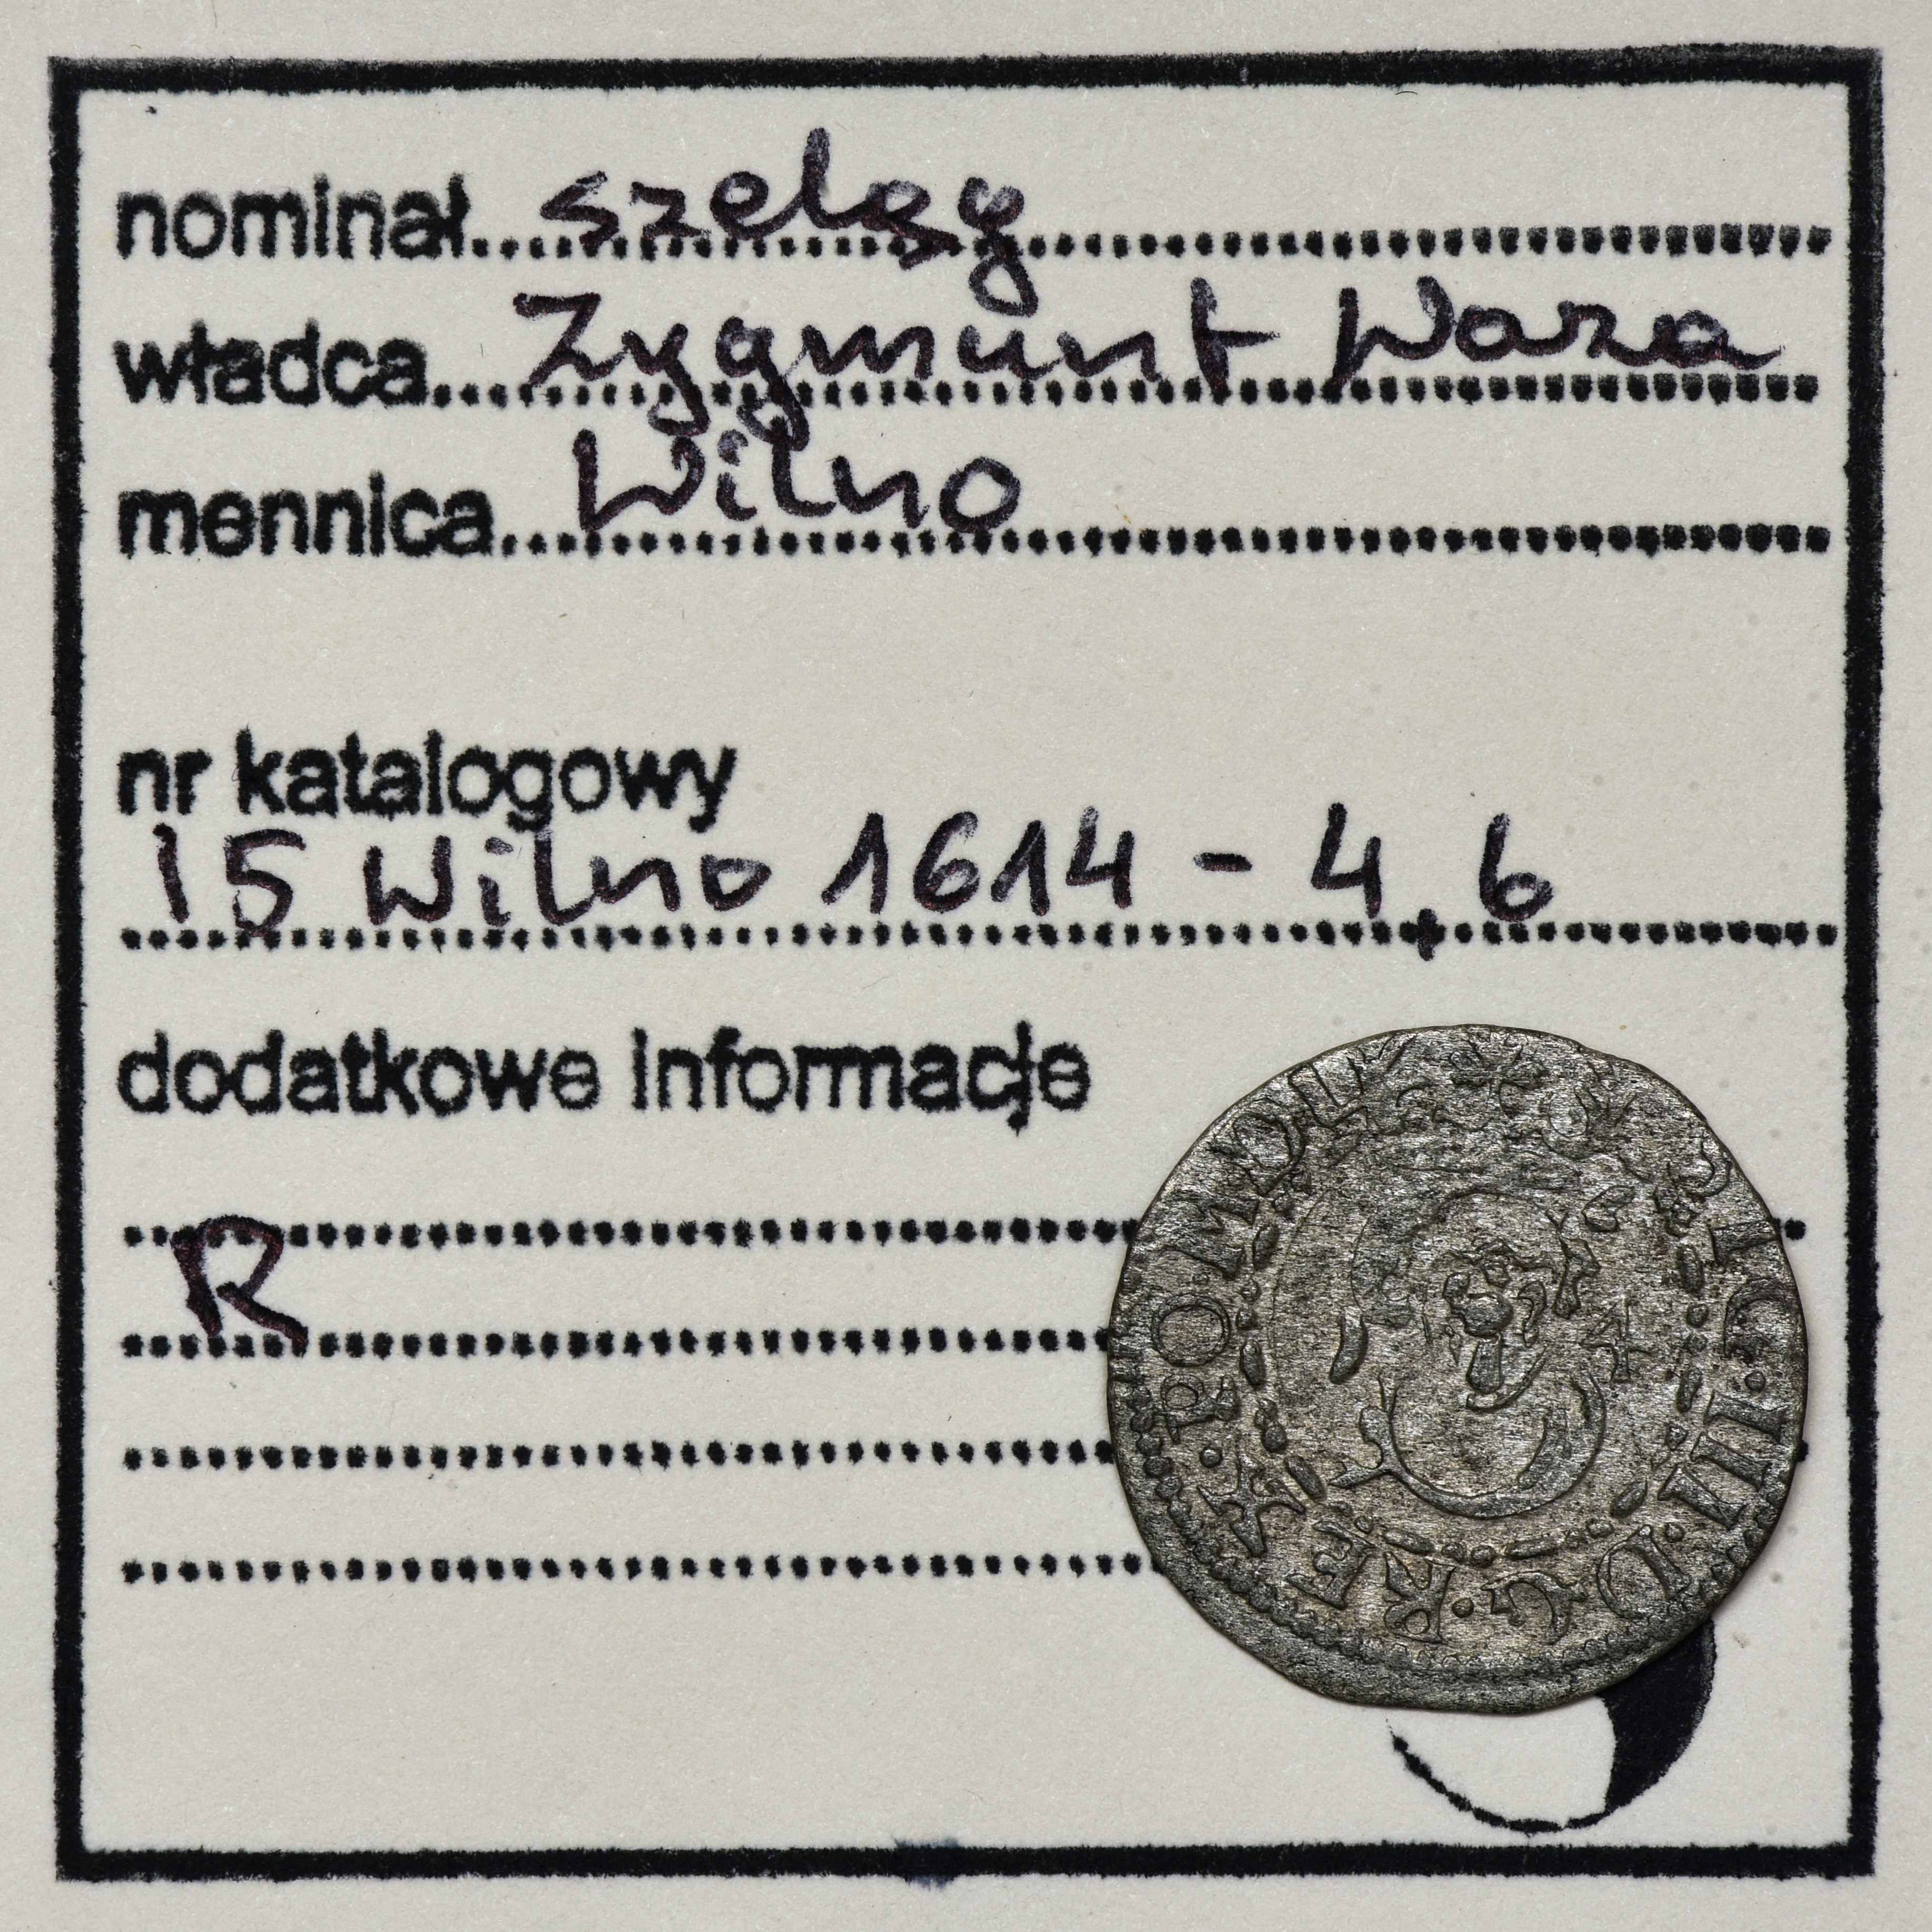 nominał szelągy
władca Zygmunt Waza
mennica Wilno
nr katalogowy
15 Wilno 1614 - 4, 6
dodatkowe informacje
R
III·D·G·REX·PO·M·D·L
4